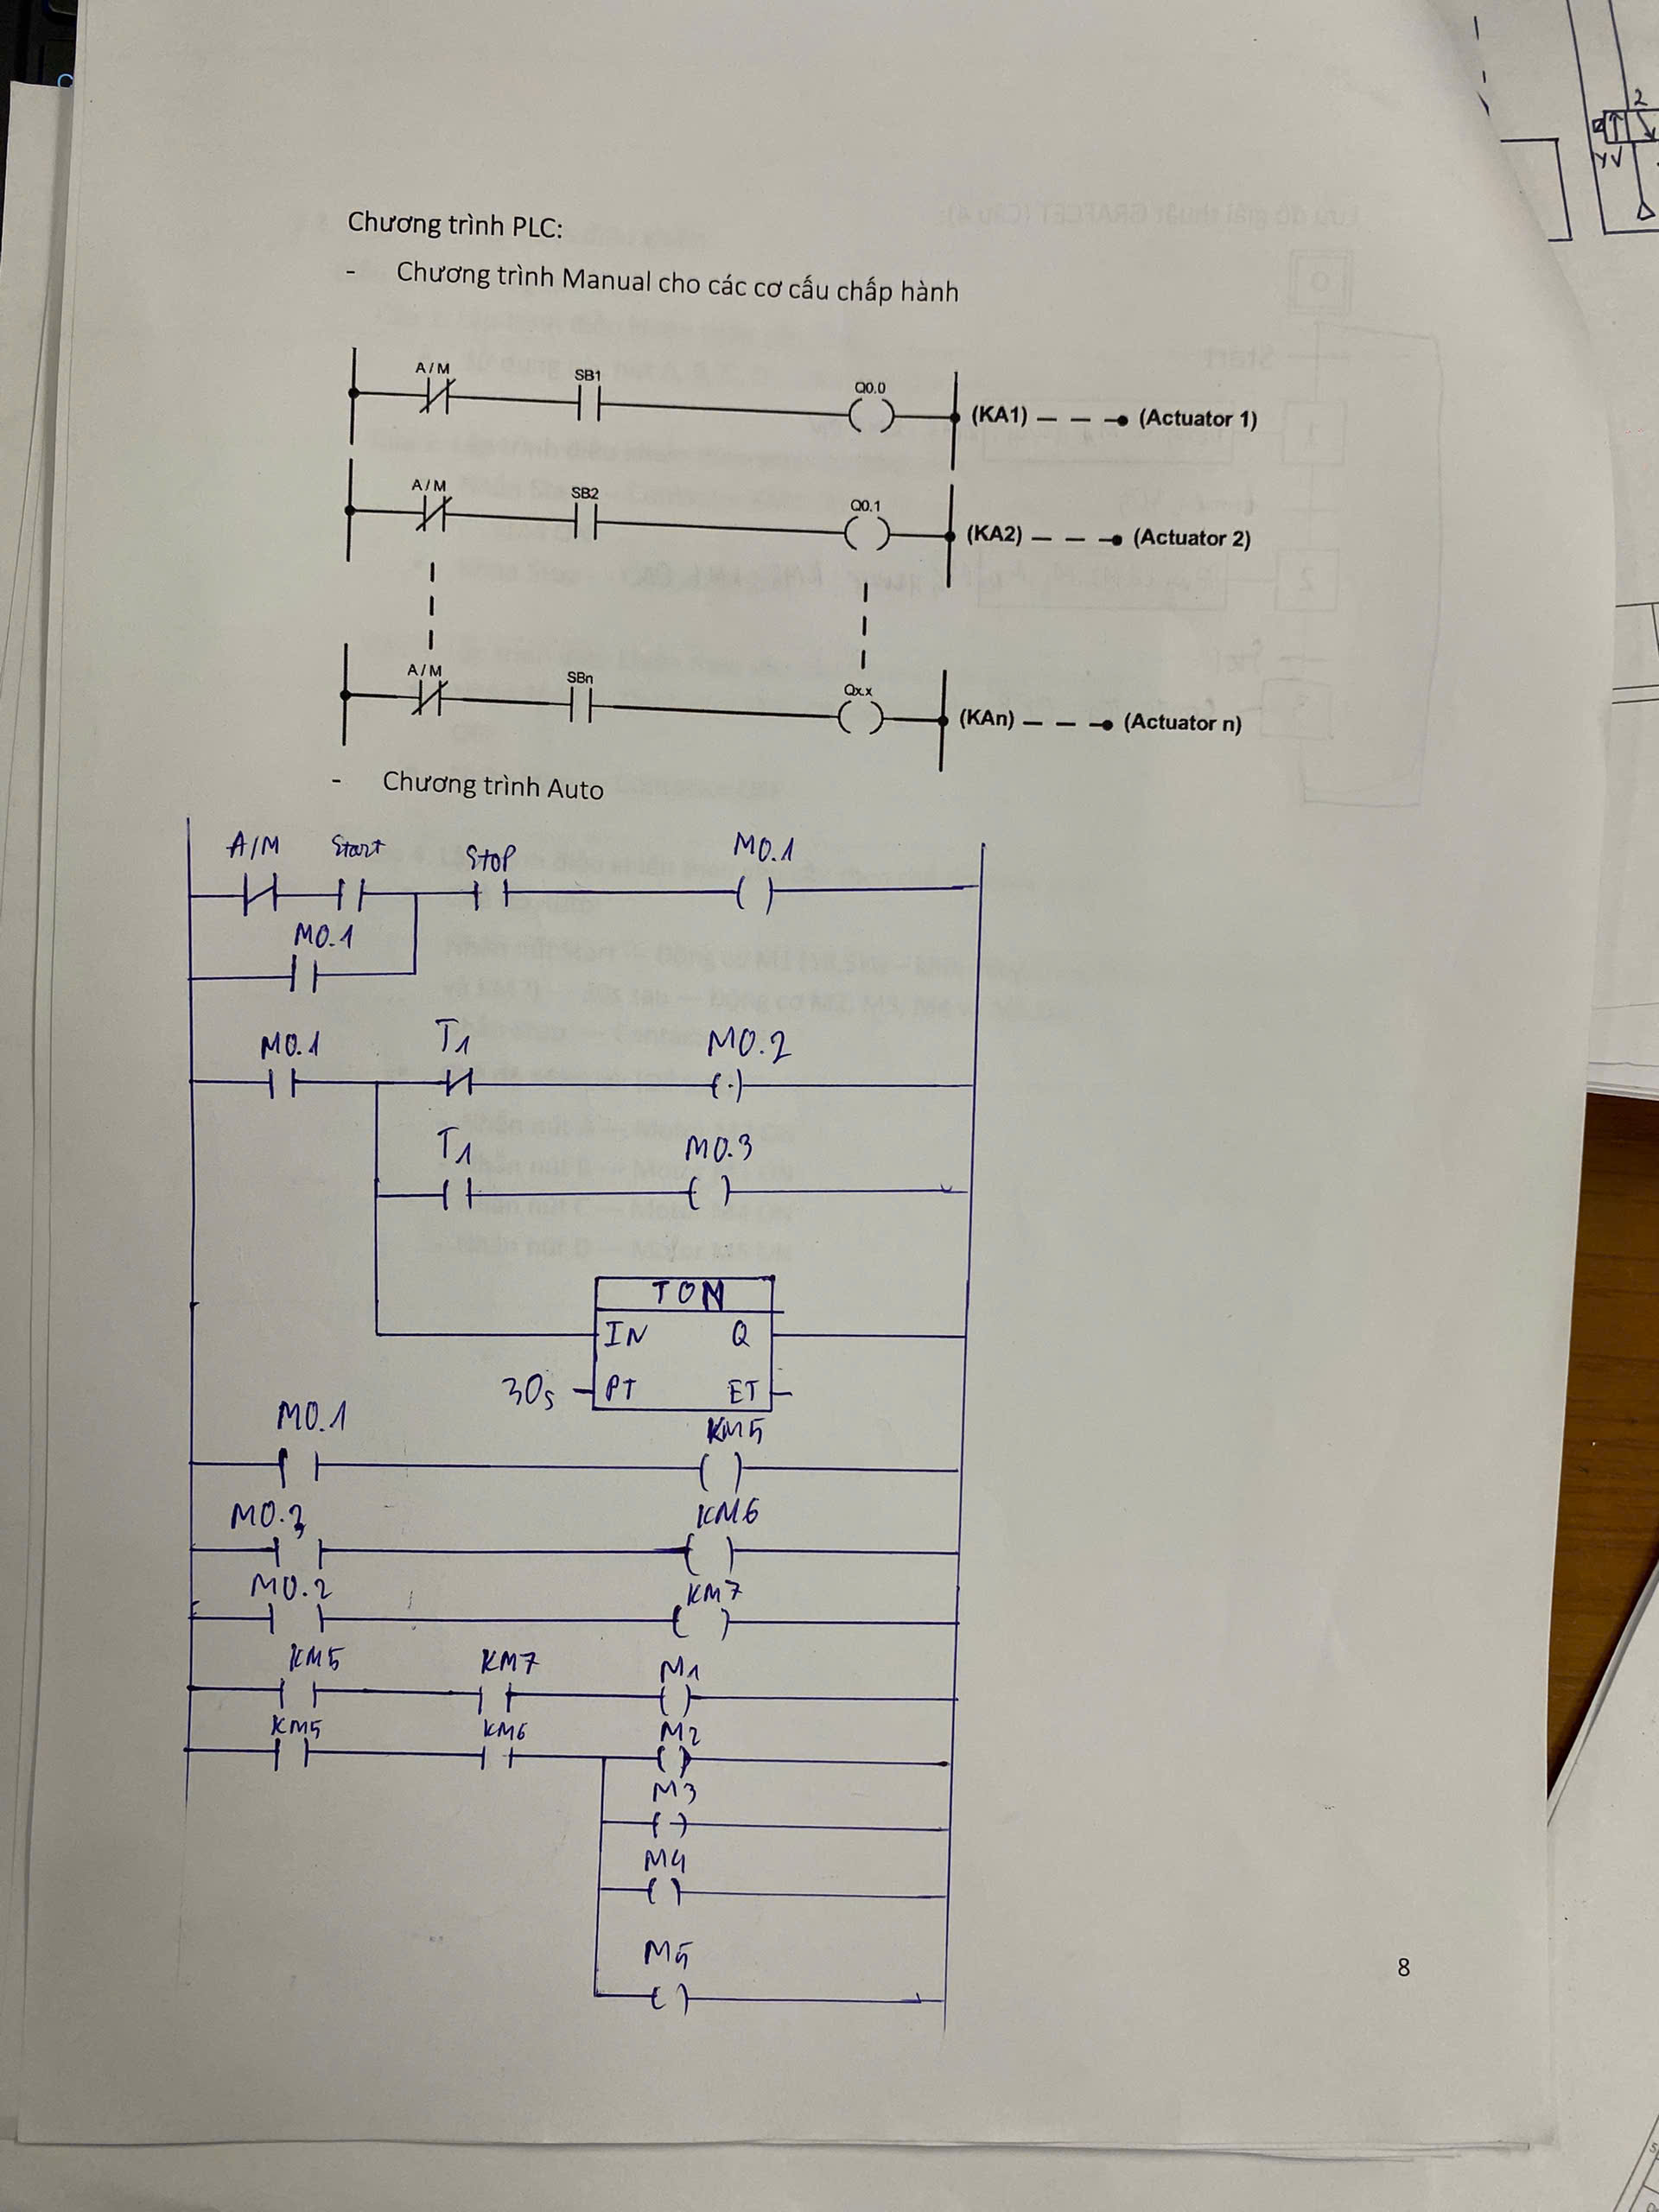 2
YV
Chương trình PLC:
- Chương trình Manual cho các cơ cấu chấp hành
A/M SB1 Q0.0
(KA1) (Actuator 1)
A/M SB2 Q0.1
(KA2) (Actuator 2)
A/M SBn Qx.x
(KAn) (Actuator n)
- Chương trình Auto
A/M Start Stop M0.1
M0.1
M0.1 T1 M0.2
T1 M0.3
TON
IN Q
30s PT ET
M0.1 KM5
M0.3 KM6
M0.2 KM7
KM5 KM7 M1
KM5 KM6 M2
M3
M4
M5
8